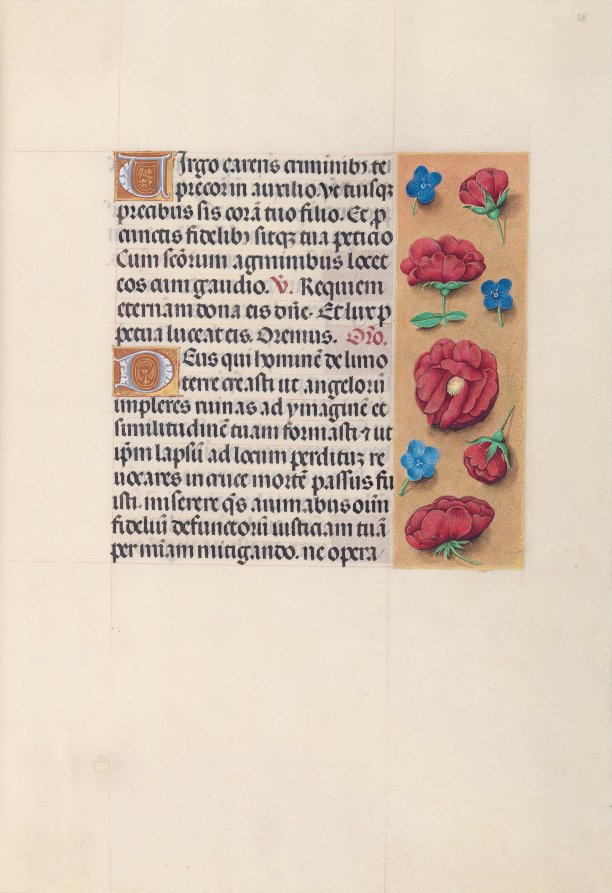 Uirgo carens criminibꝫ te
precor in auxilio. Vt tuisqꝫ
precibus sis corā tuo filio. Et ꝓ
cunctis fidelibꝫ sitqꝫ tua peticio
Cum scōrum agminibus locet
eos cum gaudio. V̄. Requiem
eternam dona eis dn̄e. Et lux ꝑ
petua luceat eis. Oremus. Oro.
Deus qui hominē de limo
terre creasti ut angelorū
impleres ruinas ad ymaginē et
similitudinē tuam formasti ⁊ ut
ip̄m lapsū ad locum perdituꝫ re
uocares in cruce mortē passus fu
isti. miserere q̄s animabus oīm
fideliū defunctorū iusticiam tuā
per mīam mitigando. ne opera